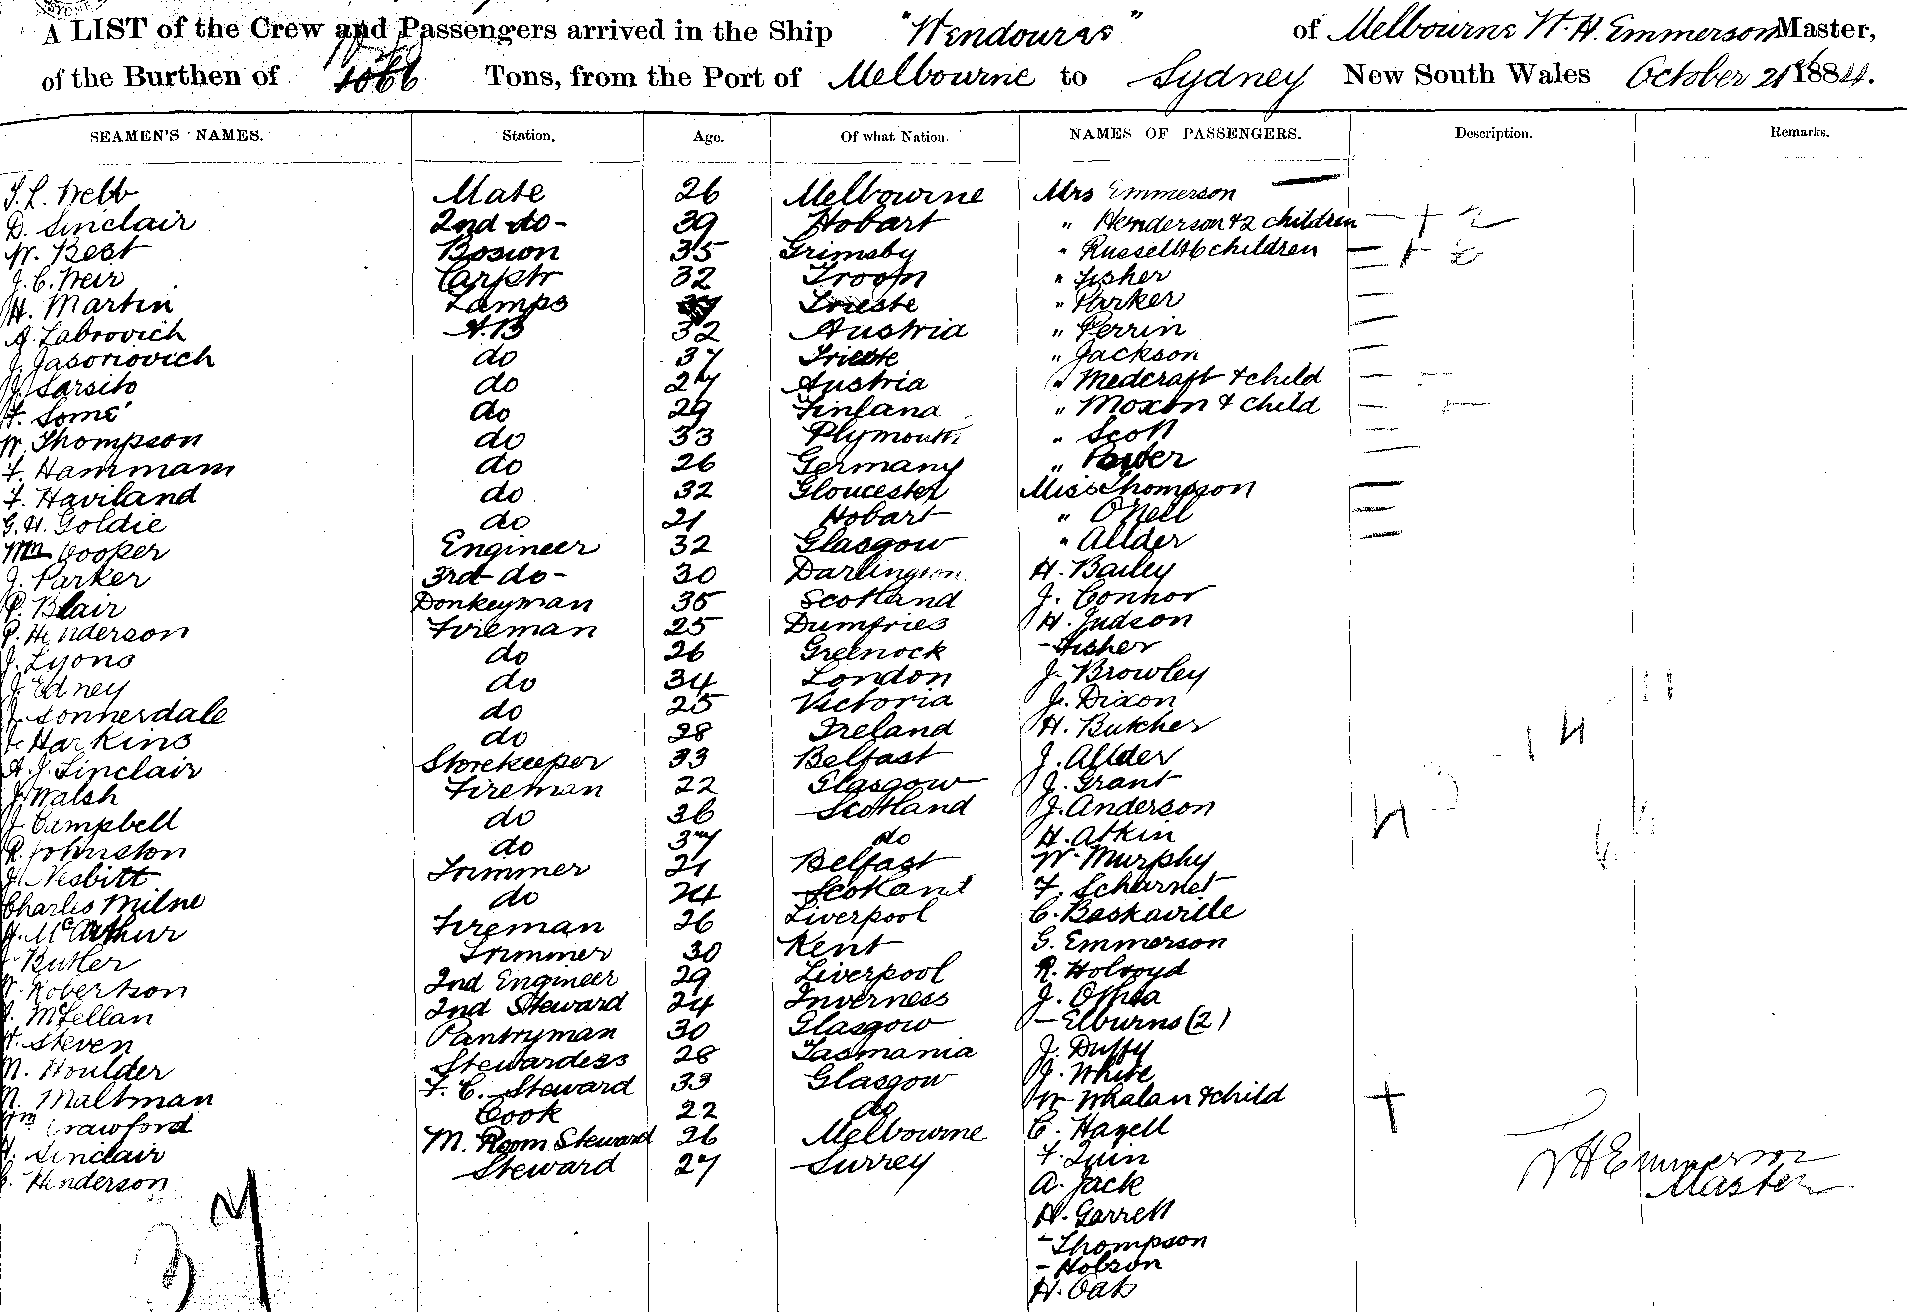 A LIST of the Crew and Passengers arrived in the Ship "Wendouree" of Melbourne W. H. Emmerson Master,
of the Burthen of 1066 Tons, from the Port of Melbourne to Sydney New South Wales October 21st 1884.
SEAMEN'S NAMES. Station. Age. Of what Nation. NAMES OF PASSENGERS. Description. Remarks.
S. L. Webb Mate 26 Melbourne Mrs Emmerson
D. Sinclair 2nd do 39 Hobart " Henderson & 2 children + 2
W. Best Bosion 35 Grimsby " Russell & 6 children + 6
J. C. Weir Carptr 32 Troon " Fisher
H. Martin Lamps Trieste " Parker
A. Labrovich A.B 32 Austria " Perrin
J. Jasonovich do 37 Trieste " Jackson
J. Sarsito do 27 Austria " Medcraft & child
F. Some do 29 Finland " Moxon & child
W. Thompson do 33 Plymouth " Scott
F. Hammam do 26 Germany "
F. Haviland do 32 Gloucester Miss Thompson
G. H. Goldie do 21 Hobart " O'Neil
Wm Cooker Engineer 32 Glasgow " Allder
J. Parker 3rd do 30 Darlington H. Bailey
P. Blair Donkeyman 35 Scotland J. Connor
P. Henderson Fireman 25 Dumfries H. Judson
J. Lyons do 26 Greenock - Fisher
J. Edney do 34 London J. Browley
J. Sonnerdale do 25 Victoria J. Dixon
J. Harkins do 28 Ireland H. Butcher
A. J. Sinclair Storekeeper 33 Belfast J. Allder
J. Walsh Fireman 22 Glasgow J. Grant
J. Campbell do 36 Scotland J. Anderson
R. Johnston do 37 do H. Atkin
J. Nesbitt Trimmer 21 Belfast W. Murphy
Charles Milne do 24 Scotland F. Scharnet
H. McArthur Fireman 26 Liverpool C. Baskaville
Butler Trimmer 30 Kent G. Emmerson
W. Robertson 2nd Engineer 29 Liverpool R. Holroyd
McLellan 2nd Steward 24 Inverness J.
Steven Pantryman 30 Glasgow - Elburns (2)
M. Houlder Stewardess 28 Tasmania J. Duffy
N. Maltman F. C. Steward 33 Glasgow J. White
Wm Crawford Cook 22 do W Whalan & child +
Sinclair M. Room Steward 26 Melbourne C. Hazell
Henderson Steward 27 Surrey F. Quin
A. Jack
H. Garrett
- Thompson
- Hobson
H. Oak
W H Emmerson
Master
37